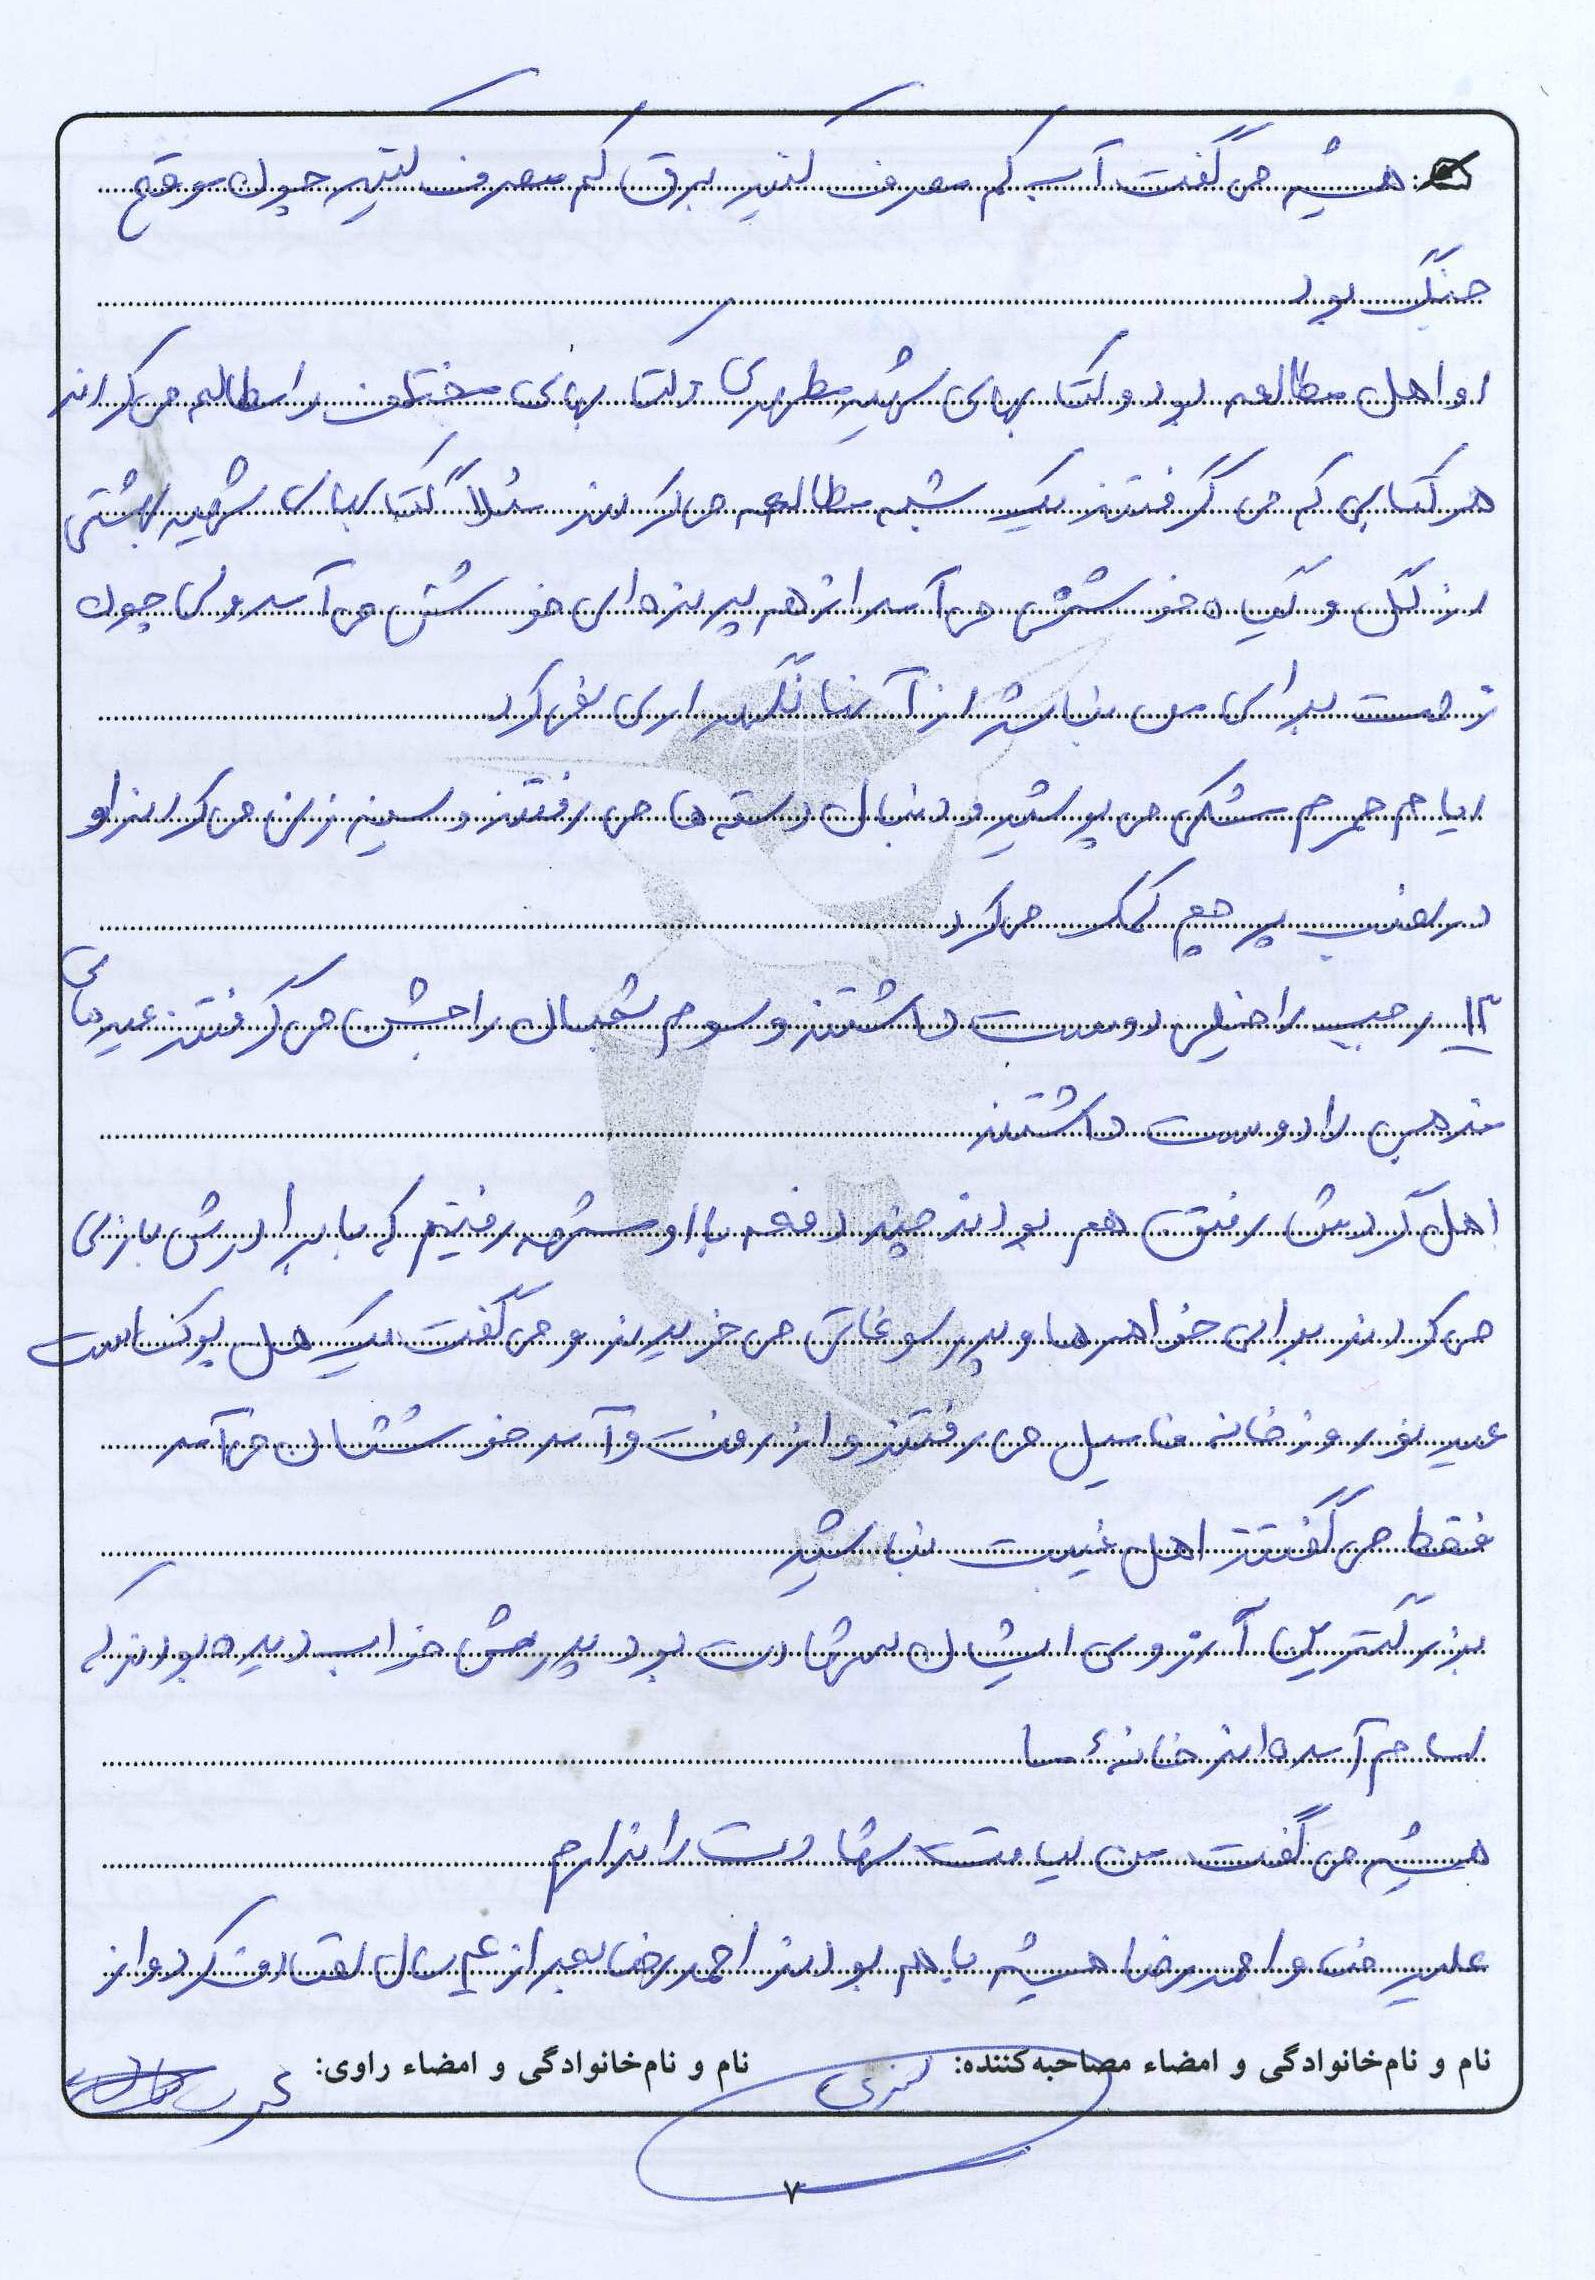 همیشه می گفت آب کم مصرف کنید برق کم مصرف کنید چون موقع
جنگ بود
او اهل مطالعه بود و کتابهای شهید مطهری و کتابهای مختلف را مطالعه می کردند
هر کتابی که می گرفتند یک شبه مطالعه می کردند مثلاً کتابهای شهید بهشتی
از گل و گیاه خوششش می آمد از هر پرنده ای خوشش می آمد ولی چون
زحمت برای من نباشد از آنها نگهداری نمی کرد
ایام محرم مشکی می پوشید و دنبال دسته ها می رفتند و سینه زنی می کردند او
در نصب پرچم کمک می کرد
۱۳ رجب را خیلی دوست داشتند و سوم شعبان را جشن می گرفتند عیدهای
مذهبی را دوست داشتند
اهل گردش رفتن هم بودند چند دفعه با او مشهد رفتیم که با برادرش بازی
می کردند برای خواهرها و پدر سوغاتی می خریدند و می گفت یک هل پوک است
عید نوروز خانه فامیل می رفتند و از رفت و آمد خوششان می آمد
فقط می گفتند اهل غیبت نباشید
بزرگترین آرزوی ایشان شهادت بود پدرش خواب دیده بودند که
امام آمده اند خانهٔ ما
همیشه می گفت من لیاقت شهادت را ندارم
علیرضا و احمدرضا همیشه با هم بودند احمدرضا بعد از سال تصادف کرد و از
نام و نام‌خانوادگی و امضاء مصاحبه‌کننده: نام و نام‌خانوادگی و امضاء راوی:
۷